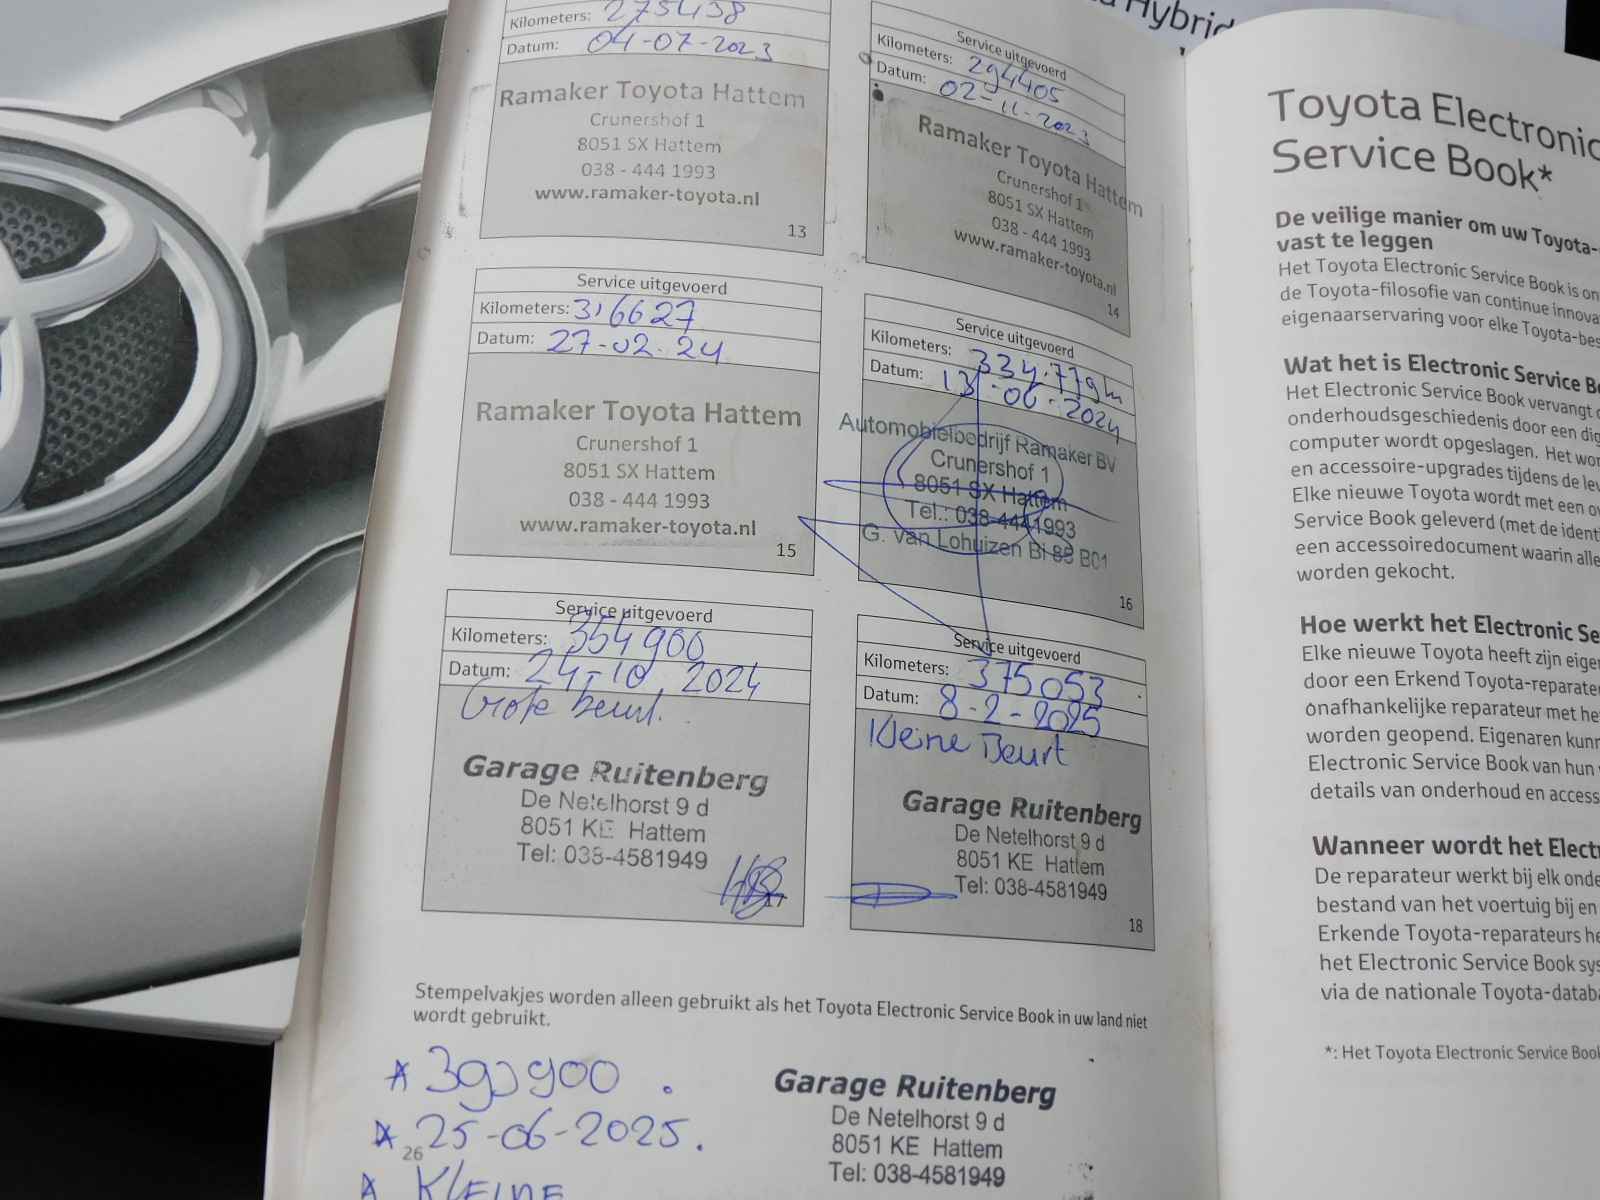 Kilometers: 275438
Datum: 04-07-2023
Ramaker Toyota Hattem
Crunershof 1
8051 SX Hattem
038 - 444 1993
www.ramaker-toyota.nl
13
Service uitgevoerd
Kilometers: 294405
Datum: 02-11-2023
Ramaker Toyota Hattem
Crunershof 1
8051 SX Hattem
038 - 444 1993
www.ramaker-toyota.nl
14
Service uitgevoerd
Kilometers: 316627
Datum: 27-02-24
Ramaker Toyota Hattem
Crunershof 1
8051 SX Hattem
038 - 444 1993
www.ramaker-toyota.nl
15
Service uitgevoerd
Kilometers:
Datum: 13-06-2024
Automobielbedrijf Ramaker BV
Crunershof 1
8051 SX Hattem
Tel.: 038-4441993
G. van Lohuizen Bi 88 B01
16
Service uitgevoerd
Kilometers: 354900
Datum: 24-10 2024
Grote beurt.
Garage Ruitenberg
De Netelhorst 9 d
8051 KE Hattem
Tel: 038-4581949
17
Service uitgevoerd
Kilometers: 375053
Datum: 8-2-2025
Kleine Beurt
Garage Ruitenberg
De Netelhorst 9 d
8051 KE Hattem
Tel: 038-4581949
18
Stempelvakjes worden alleen gebruikt als het Toyota Electronic Service Book in uw land niet
wordt gebruikt.
25-06-2025.
KLEINE
26
Garage Ruitenberg
De Netelhorst 9 d
8051 KE Hattem
Tel: 038-4581949
Hybrid
Toyota Electronic
Service Book*
De veilige manier om uw Toyota-
vast te leggen
Het Toyota Electronic Service Book is on
de Toyota-filosofie van continue innova
eigenaarservaring voor elke Toyota-bes
Wat het is Electronic Service B
Het Electronic Service Book vervangt
onderhoudsgeschiedenis door een dig
computer wordt opgeslagen. Het wor
en accessoire-upgrades tijdens de le
Elke nieuwe Toyota wordt met een o
Service Book geleverd (met de identi
een accessoiredocument waarin alle
worden gekocht.
Hoe werkt het Electronic Se
Elke nieuwe Toyota heeft zijn eige
door een Erkend Toyota-reparate
onafhankelijke reparateur met he
worden geopend. Eigenaren kunn
Electronic Service Book van hun
details van onderhoud en access
Wanneer wordt het Electr
De reparateur werkt bij elk onde
bestand van het voertuig bij en
Erkende Toyota-reparateurs he
het Electronic Service Book sys
via de nationale Toyota-databa
*: Het Toyota Electronic Service Book